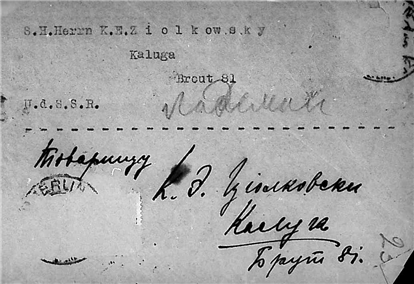 S.H.Herrn K.E.Z i o l k o w s k y
Kaluga
Brout 81
U.d.S.S.R.
Товарищу
BERLIN
К. Э. Ціолковски
Калуга
Брут 81.
23